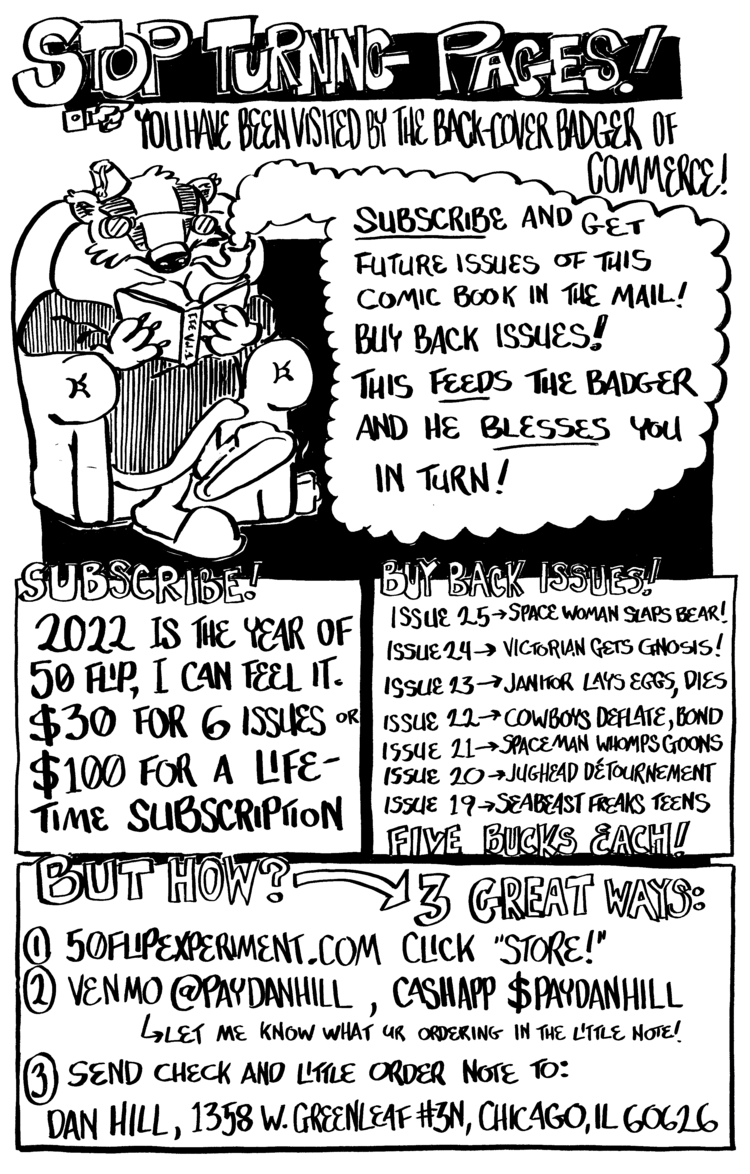 STOP TURNING PAGES!
YOU HAVE BEEN VISITED BY THE BACK-COVER BADGER OF
COMMERCE!
SUBSCRIBE AND GET
FUTURE ISSUES OF THIS
COMIC BOOK IN THE MAIL!
BUY BACK ISSUES!
THIS FEEDS THE BADGER
AND HE BLESSES YOU
IN TURN!
SUBSCRIBE!
2022 IS THE YEAR OF
50 FLIP, I CAN FEEL IT.
$30 FOR 6 ISSUES OR
$100 FOR A LIFE-
TIME SUBSCRIPTION
BUY BACK ISSUES!
ISSUE 25→SPACE WOMAN SLAPS BEAR!
ISSUE 24→ VICTORIAN GETS GNOSIS!
ISSUE 23→JANITOR LAYS EGGS, DIES
ISSUE 22→COWBOYS DEFLATE, BOND
ISSUE 21→SPACEMAN WHOMPS GOONS
ISSUE 20→JUGHEAD DÉTOURNEMENT
ISSUE 19→SEABEAST FREAKS TEENS
FIVE BUCKS EACH!
BUT HOW? → 3 GREAT WAYS:
① 50FLIPEXPERIMENT.COM CLICK "STORE!"
② VENMO @PAYDANHILL, CASHAPP $PAYDANHILL
↳LET ME KNOW WHAT UR ORDERING IN THE LITTLE NOTE!
③ SEND CHECK AND LITTLE ORDER NOTE TO:
DAN HILL, 1358 W. GREENLEAF #3N, CHICAGO, IL 60626